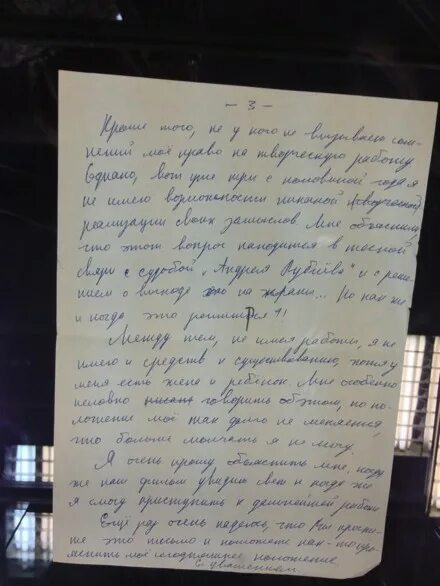 — 3 —
Кроме того, ни у кого не вызывало сом-
нений моё право на творческую работу
Однако, вот уже три с половиной года я
не имею возможности никакой творческой
реализации своих замыслов. Мне объяснили,
что этот вопрос находится в тесной
связи с судьбой „Андрея Рублёва" и с реше-
нием о выходе его на экраны... Но как же
и когда это решится?!
Между тем, не имея работы, я не
имею и средств к существованию, хотя у
меня есть жена и ребёнок. Мне особенно
неловко говорить об этом, но по-
ложение моё так долго не меняется,
что больше молчать я не могу.
Я очень прошу объяснить мне, когда
же наш фильм увидит свет и когда же
я смогу приступить к дальнейшей работе.
Ещё раз очень надеюсь, что Вы прости-
те это письмо и поможете как-то изме-
менить моё сегодняшнее положение.
С уважением.